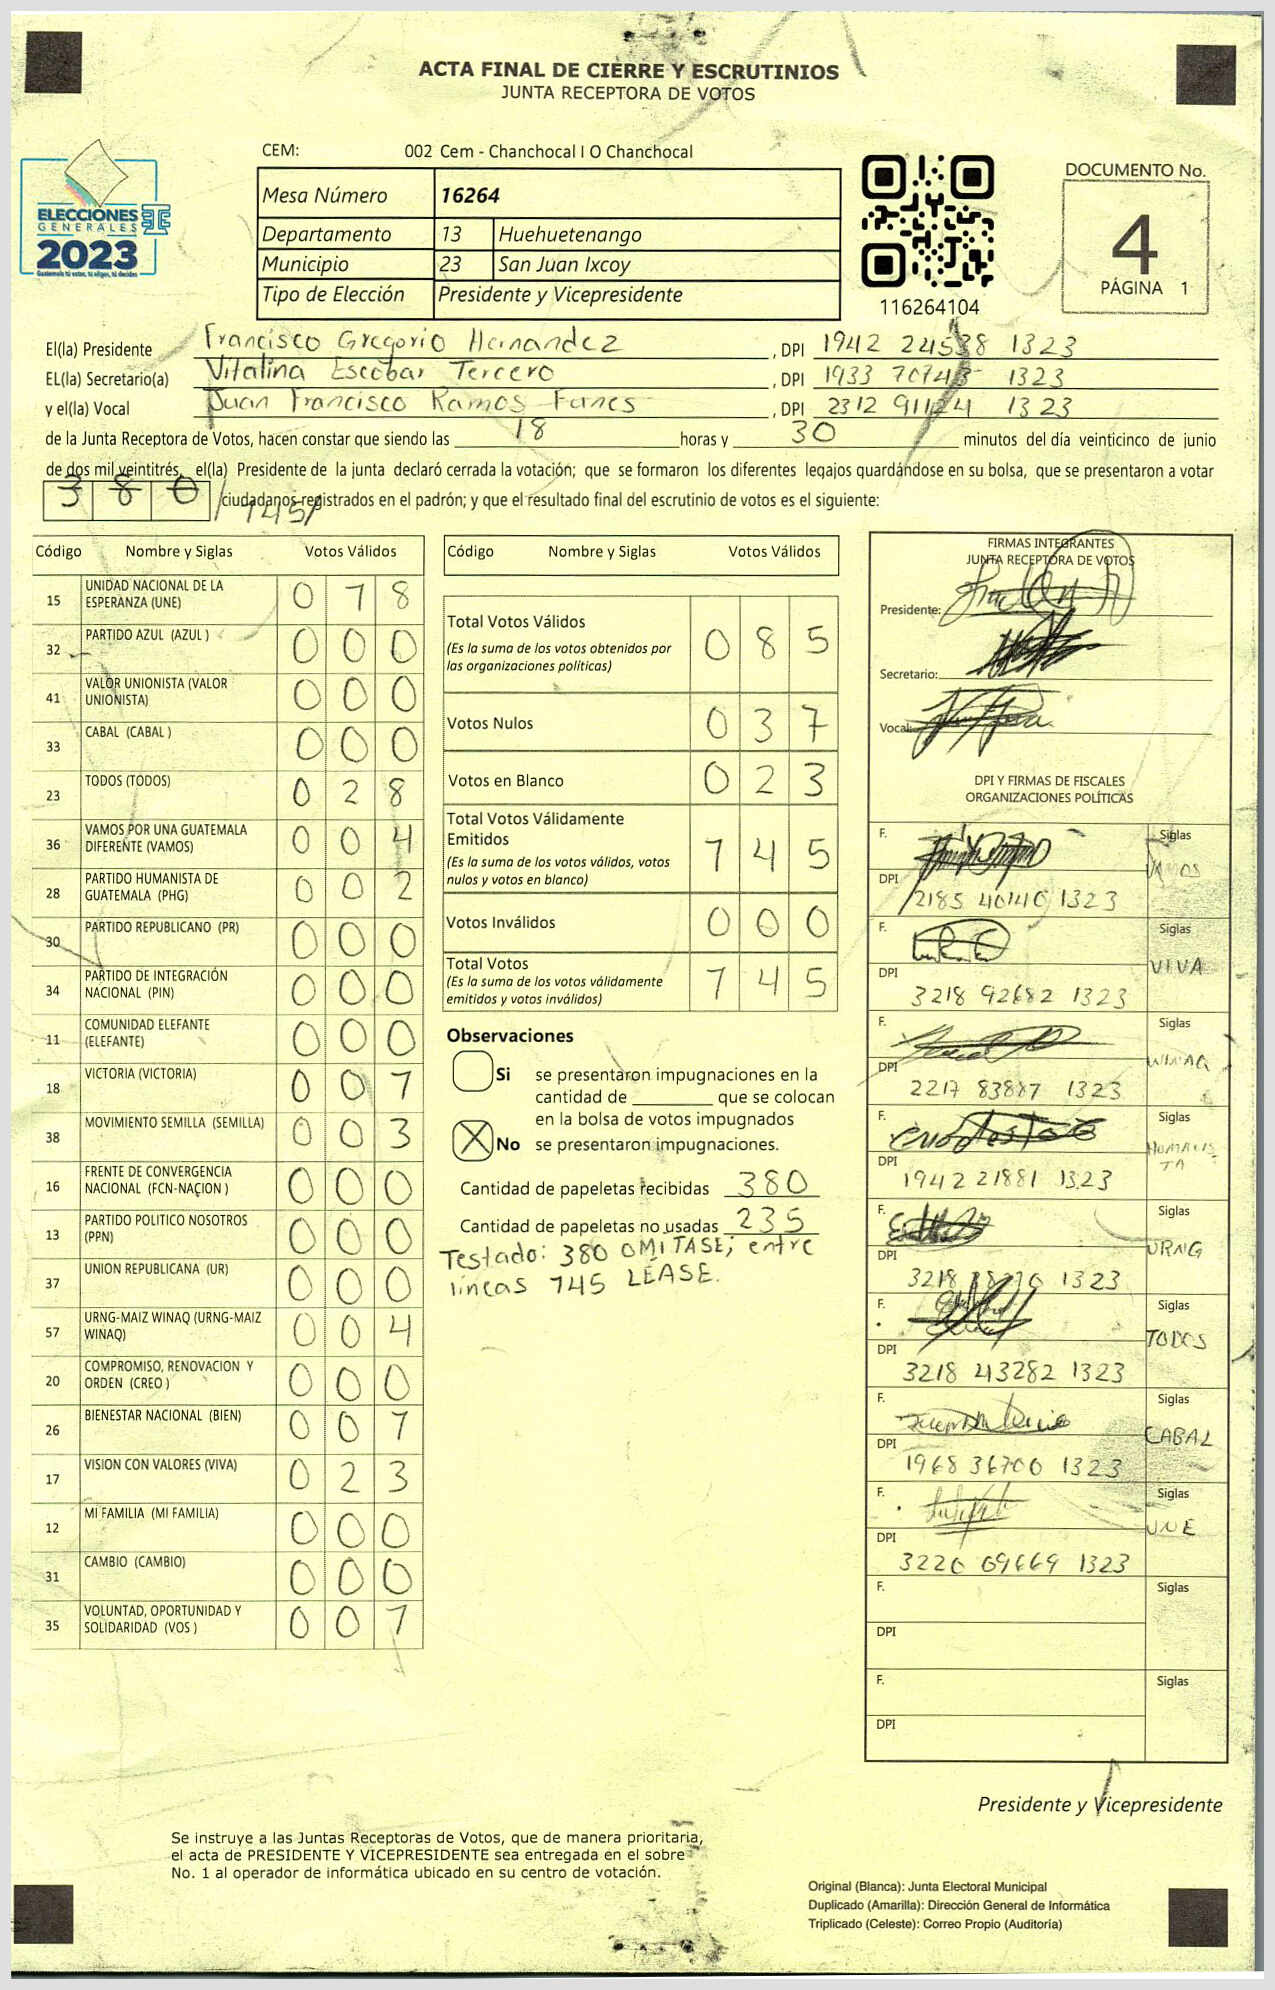 ACTA FINAL DE CIERRE Y ESCRUTINIOS
JUNTA RECEPTORA DE VOTOS
CEM: 002 Cem - Chanchocal I O Chanchocal
ELECCIONES
GENERALES
2023
Guatemala tú votas, tú eliges, tú decides
Mesa Número 16264
Departamento 13 Huehuetenango
Municipio 23 San Juan Ixcoy
Tipo de Elección Presidente y Vicepresidente
116264104
DOCUMENTO No.
4
PÁGINA 1
El(la) Presidente Francisco Gregorio Hernandez , DPI 1942 24538 1323
EL(la) Secretario(a) Vitalina Escobar Tercero , DPI 1933 70743 1323
y el(la) Vocal Juan Francisco Ramos , DPI 2312 91124 1323
de la Junta Receptora de Votos, hacen constar que siendo las 18 horas y 30 minutos del día veinticinco de junio
de dos mil veintitrés, el(la) Presidente de la junta declaró cerrada la votación; que se formaron los diferentes legajos guardándose en su bolsa, que se presentaron a votar
380 /145/ ciudadanos registrados en el padrón; y que el resultado final del escrutinio de votos es el siguiente:
Código Nombre y Siglas Votos Válidos
15 UNIDAD NACIONAL DE LA ESPERANZA (UNE) 0 7 8
32 PARTIDO AZUL (AZUL ) 0 0 0
41 VALOR UNIONISTA (VALOR UNIONISTA) 0 0 0
33 CABAL (CABAL ) 0 0 0
23 TODOS (TODOS) 0 2 8
36 VAMOS POR UNA GUATEMALA DIFERENTE (VAMOS) 0 0 4
28 PARTIDO HUMANISTA DE GUATEMALA (PHG) 0 0 2
30 PARTIDO REPUBLICANO (PR) 0 0 0
34 PARTIDO DE INTEGRACIÓN NACIONAL (PIN) 0 0 0
11 COMUNIDAD ELEFANTE (ELEFANTE) 0 0 0
18 VICTORIA (VICTORIA) 0 0 1
38 MOVIMIENTO SEMILLA (SEMILLA) 0 0 3
16 FRENTE DE CONVERGENCIA NACIONAL (FCN-NACION ) 0 0 0
13 PARTIDO POLITICO NOSOTROS (PPN) 0 0 0
37 UNION REPUBLICANA (UR) 0 0 0
57 URNG-MAIZ WINAQ (URNG-MAIZ WINAQ) 0 0 4
20 COMPROMISO, RENOVACION Y ORDEN (CREO ) 0 0 0
26 BIENESTAR NACIONAL (BIEN) 0 0 1
17 VISION CON VALORES (VIVA) 0 2 3
12 MI FAMILIA (MI FAMILIA) 0 0 0
31 CAMBIO (CAMBIO) 0 0 0
35 VOLUNTAD, OPORTUNIDAD Y SOLIDARIDAD (VOS ) 0 0 1
Código Nombre y Siglas Votos Válidos
Total Votos Válidos 0 8 5
(Es la suma de los votos obtenidos por
las organizaciones políticas)
Votos Nulos 0 3 7
Votos en Blanco 0 2 3
Total Votos Válidamente
Emitidos 1 4 5
(Es la suma de los votos válidos, votos
nulos y votos en blanco)
Votos Inválidos 0 0 0
Total Votos 1 4 5
(Es la suma de los votos válidamente
emitidos y votos inválidos)
Observaciones
Si se presentaron impugnaciones en la
cantidad de ________ que se colocan
en la bolsa de votos impugnados
X No se presentaron impugnaciones.
Cantidad de papeletas recibidas 380
Cantidad de papeletas no usadas 235
Testado: 380 OMITASE; entre
líneas 145 LÉASE.
FIRMAS INTEGRANTES
JUNTA RECEPTORA DE VOTOS
Presidente:
Secretario:
Vocal:
DPI Y FIRMAS DE FISCALES
ORGANIZACIONES POLÍTICAS
F. Siglas VAMOS
DPI 2185 40140 1323
F. Siglas VIVA
DPI 3218 92682 1323
F. Siglas WINAQ
DPI 2217 83887 1323
F. Siglas HUMANISTA
DPI 1942 21881 1323
F. Siglas URNG
DPI 3218 1323
F. Siglas TODOS
DPI 3218 43282 1323
F. Siglas CABAL
DPI 1968 36700 1323
F. Siglas UNE
DPI 3220 09669 1323
F. Siglas
DPI
F. Siglas
DPI
Presidente y Vicepresidente
Se instruye a las Juntas Receptoras de Votos, que de manera prioritaria,
el acta de PRESIDENTE Y VICEPRESIDENTE sea entregada en el sobre
No. 1 al operador de informática ubicado en su centro de votación.
Original (Blanca): Junta Electoral Municipal
Duplicado (Amarilla): Dirección General de Informática
Triplicado (Celeste): Correo Propio (Auditoría)